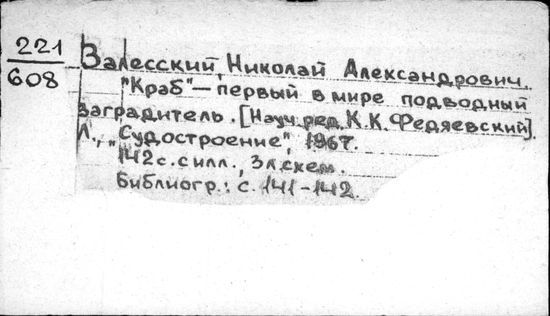 221
608
Залесский, Николай Александрович.
"Краб" — первый в мире подводный
заградитель. [Науч. ред. К. К. Федяевский].
Л., "Судостроение", 1967.
142 с. с илл., 3 л. схем.
Библиогр.: с. 141-142.